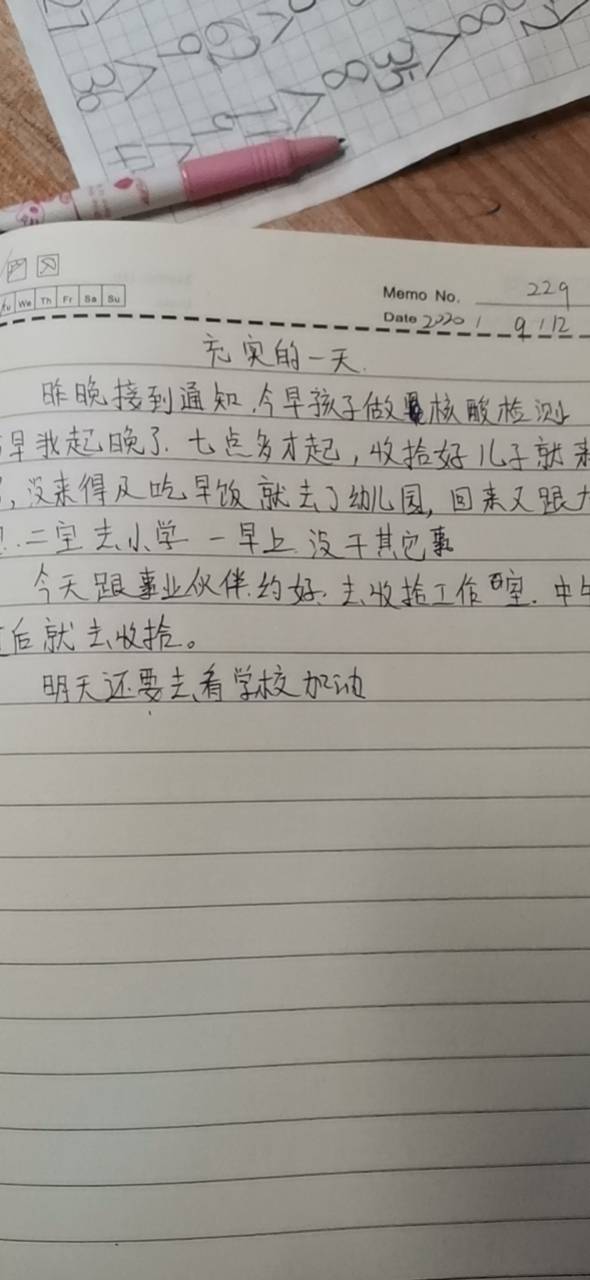 27 36 4
9 62 71 9
8 35
8 2
周 四
We Th Fr Sa Su
Memo No. 229
Date 2020 / 9 / 12
充实的一天.
昨晚接到通知.今早孩子做核酸检测
早我起晚了.七点多才起,收拾好儿子就来
,没来得及吃早饭就去了幼儿园,回来又跟大
.二宝去小学 一早上.没干其它事
今天跟事业伙伴.约好.去收拾工作室.中午
后就去收拾。
明天还要去看学校加油